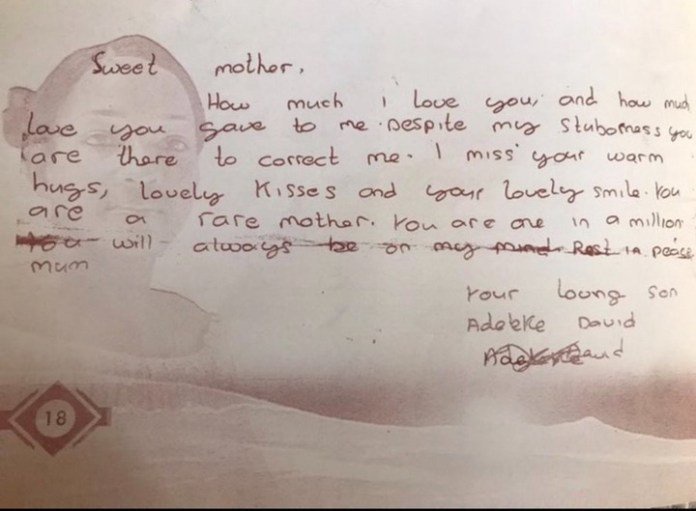 Sweet mother,
How much i love you, and how much
love you gave to me. Despite my Stuborness you
are there to correct me. I miss your warm
hugs, lovely Kisses and your lovely smile. You
are a rare mother. You are one in a million
You will always be on my mind. Rest in peace
mum
Your loving son
Adekke David
18